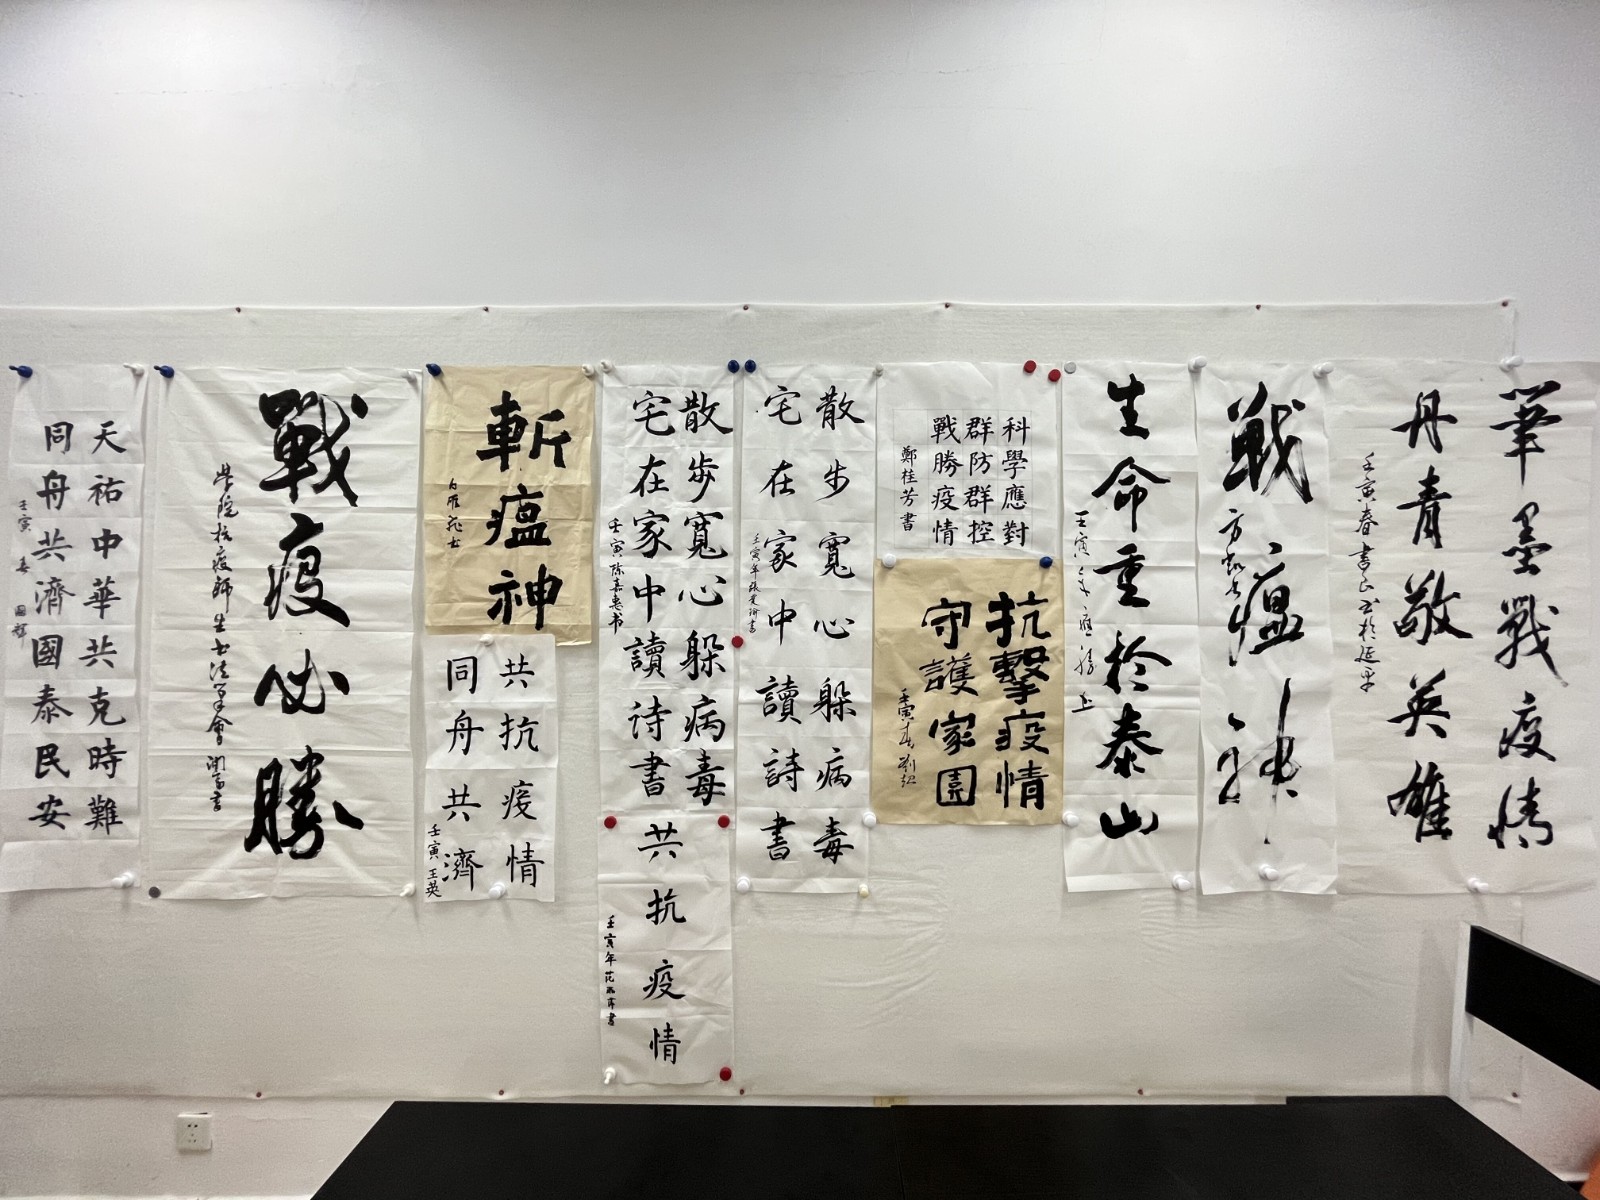 筆墨戰疫情
丹青敬英雄
壬寅春
戦瘟神
生命重於泰山
壬寅
科學應對
群防群控
戰勝疫情
鄭桂芳書
抗擊疫情
守護家園
壬寅春
散步寬心躲病毒
宅在家中讀詩書
壬寅年
散步寬心躲病毒
宅在家中讀诗書
壬寅陈嘉惠书
共抗疫情
壬寅年
斬瘟神
共抗疫情
同舟共濟
壬寅王英
戰疫必勝
學院抗疫師生书法
天祐中華共克時難
同舟共濟國泰民安
壬寅春